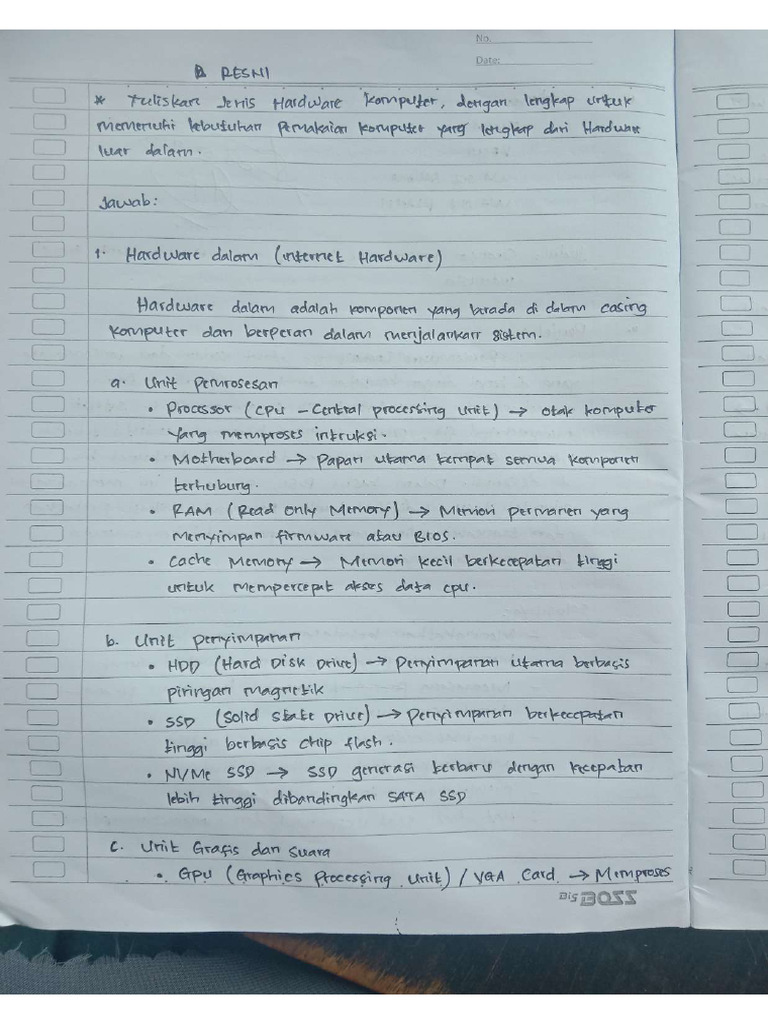 No.
Date:
RESNI
* Tuliskan Jenis Hardware Komputer, dengan lengkap untuk
memenuhi kebutuhan Pemakaian komputer yang lengkap dari Hardware
luar dalam.
Jawab:
1. Hardware dalam (internet Hardware)
Hardware dalam adalah komponen yang berada di dalam casing
komputer dan berperan dalam menjalankan sistem.
a. Unit Pemrosesan
• Processor (CPU - Central processing Unit) → otak komputer
yang memproses intruksi.
• Motherboard → Papan utama tempat semua komponen
terhubung.
• RAM (Read Only Memory) → Memori permanen yang
menyimpan firmware atau BIOS.
• Cache Memory → Memori kecil berkecepatan tinggi
untuk mempercepat akses data cpu.
b. Unit penyimpanan
• HDD (Hard Disk Drive) → Penyimpanan utama berbasis
piringan magnetik
• SSD (Solid state Drive) → Penyimpanan berkecepatan
tinggi berbasis chip flash.
• NVMe SSD → SSD generasi terbaru dengan kecepatan
lebih tinggi dibandingkan SATA SSD
c. Unit Grafis dan Suara
• GPU (Graphics Processing Unit) / VGA Card → Memproses
Big BOSS